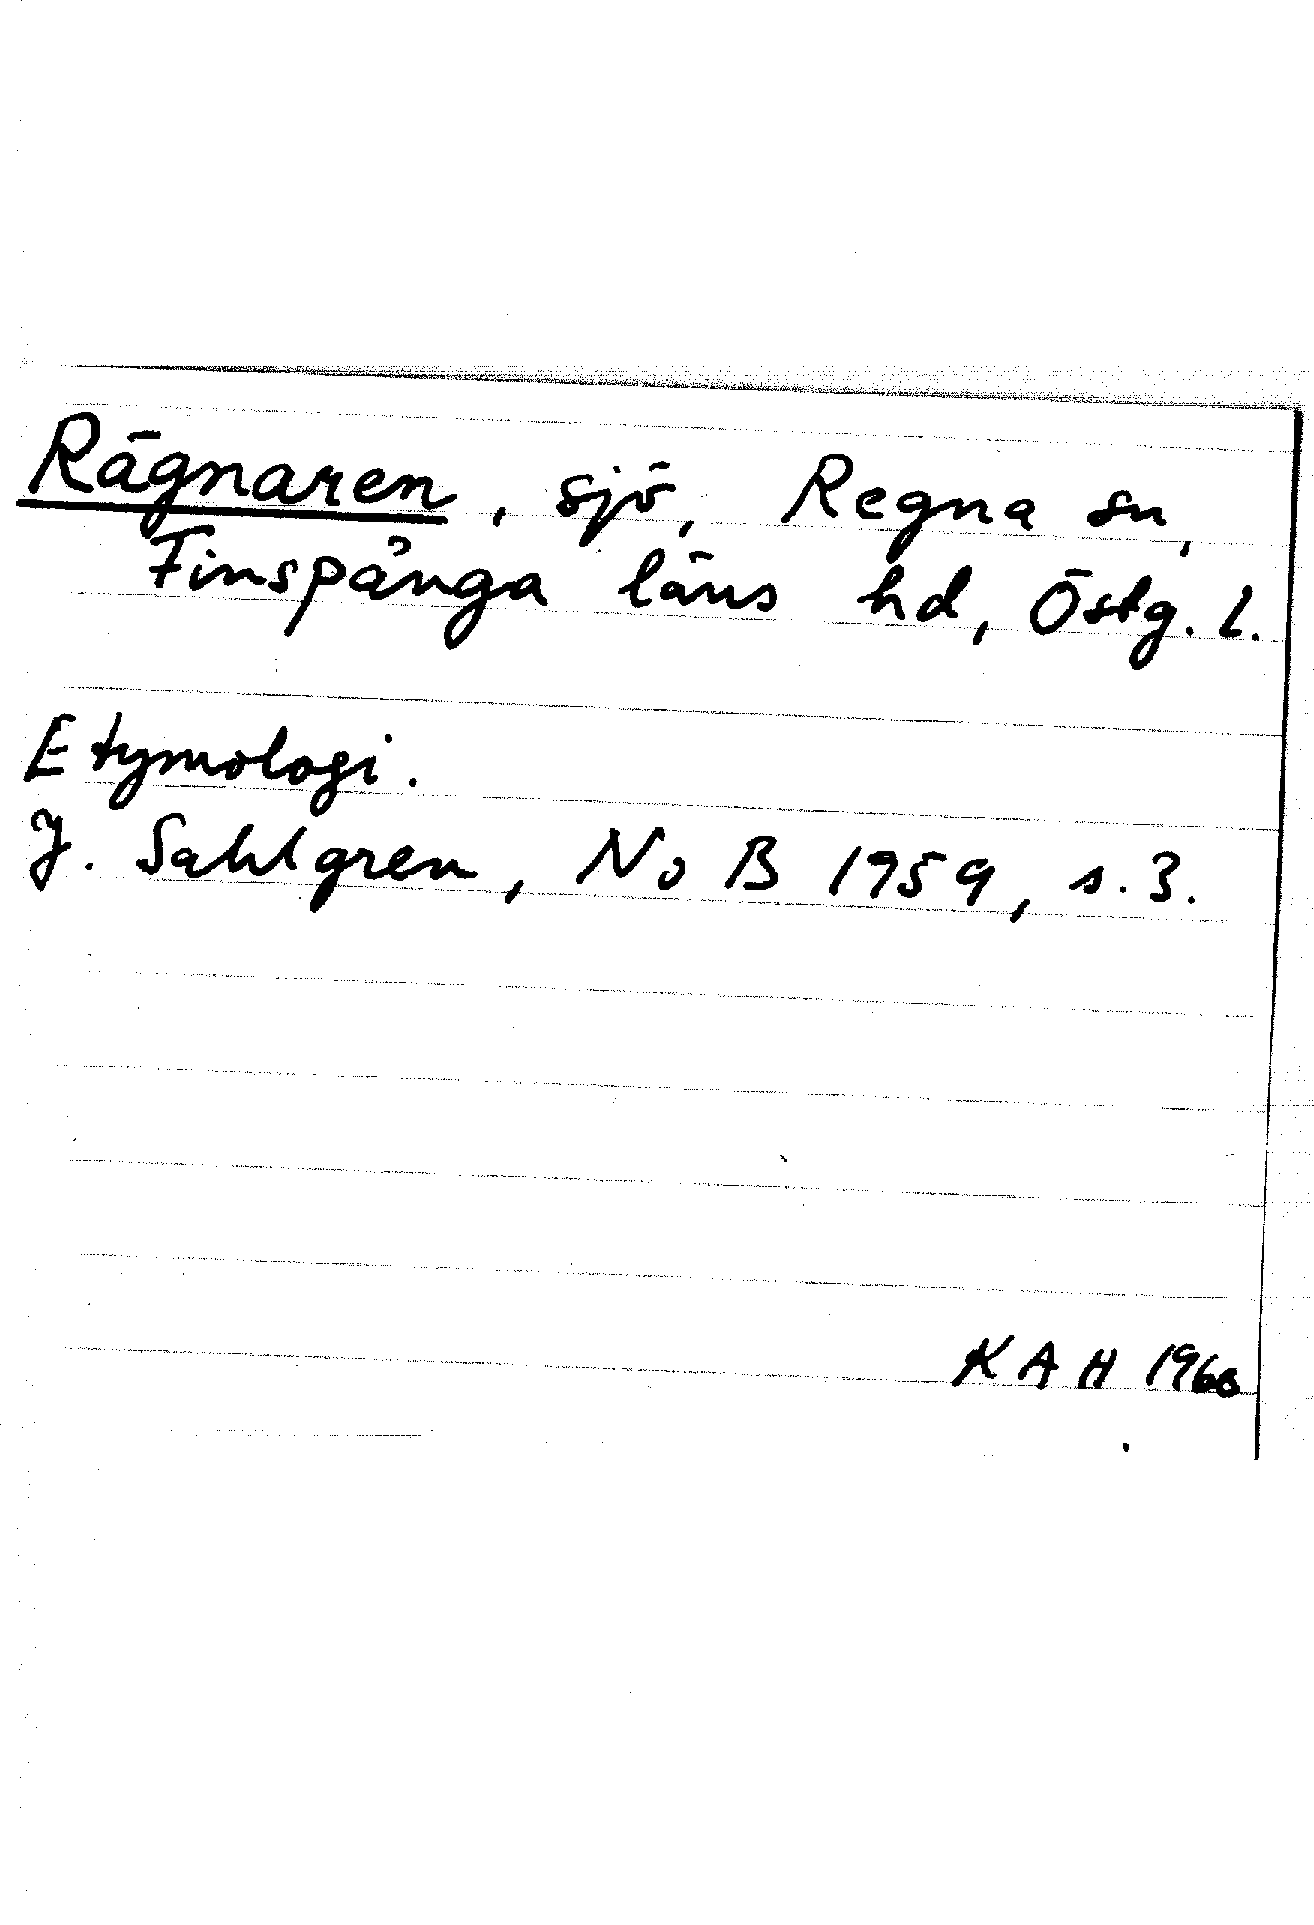 Rägnaren, sjö, Regna sn,
Finspånga läns hd, Östg. l.
Etymologi.
J. Sahlgren, NoB 1959, s. 3.
KAH